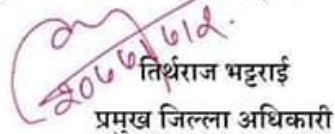 २०७७।७।२
तिर्थराज भट्टराई
प्रमुख जिल्ला अधिकारी